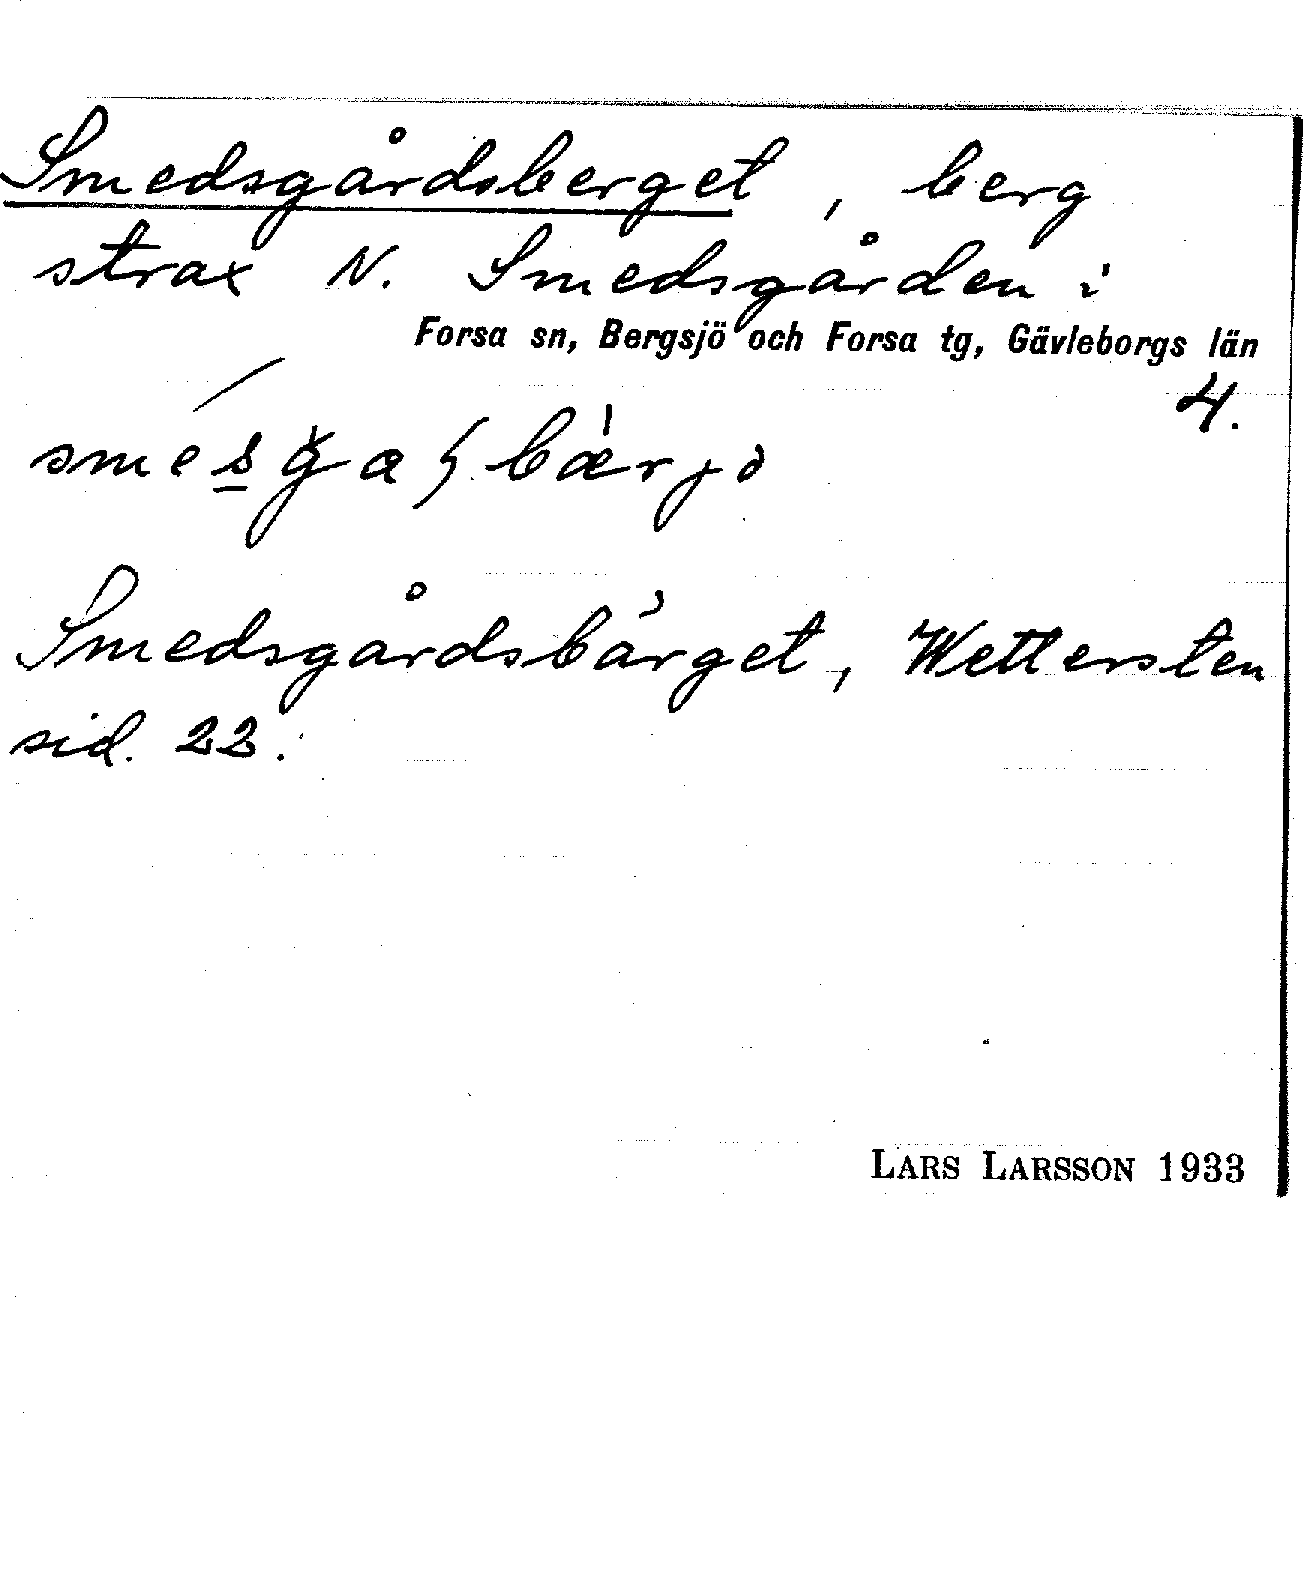 Smedsgårdsberget, berg
strax N. Smedsgården i
Forsa sn, Bergsjö och Forsa tg, Gävleborgs län
4.
Smedsgårdsbärget, Wettersten
sid. 22.
LARS LARSSON 1933